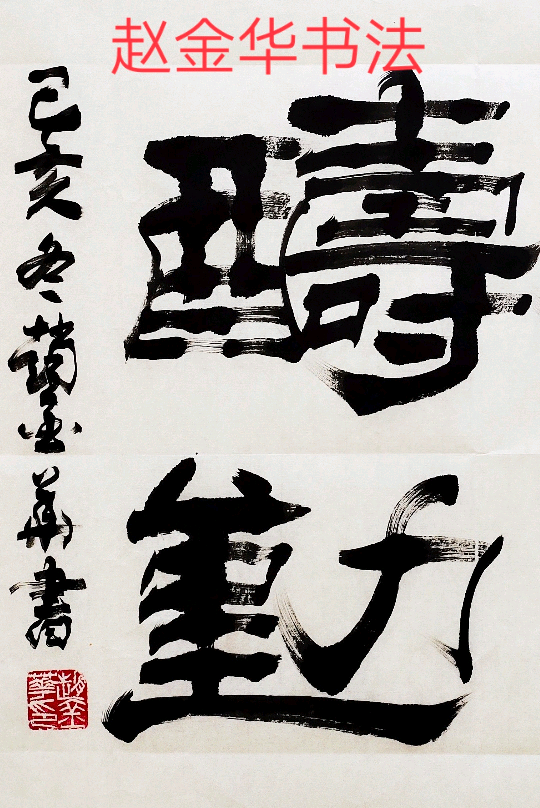 赵金华书法
醻
勤
己亥冬趙金華書
趙金華印